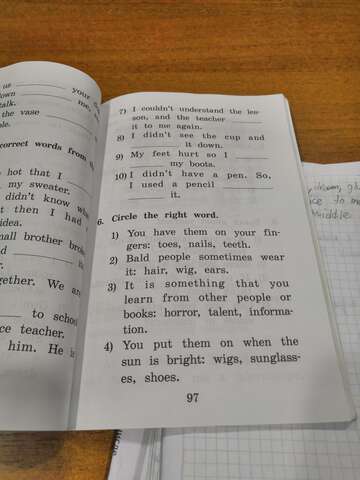 us ______ your
down ______ me,
talk.
the vase ______
correct words from
hot that I
my sweater.
didn't know
t then I had
idea.
mall brother
gether. We are
______ to school
ce teacher.
him. He is
7) I couldn't understand the les-
son, and the teacher ______
______ it to me again.
8) I didn't see the cup and
______ it down.
9) My feet hurt so I ______
______ my boots.
10) I didn't have a pen. So,
I used a pencil ______
______ it.
6. Circle the right word.
1) You have them on your fin-
gers: toes, nails, teeth.
2) Bald people sometimes wear
it: hair, wig, ears.
3) It is something that you
learn from other people or
books: horror, talent, informa-
tion.
4) You put them on when the
sun is bright: wigs, sunglass-
es, shoes.
97
middle